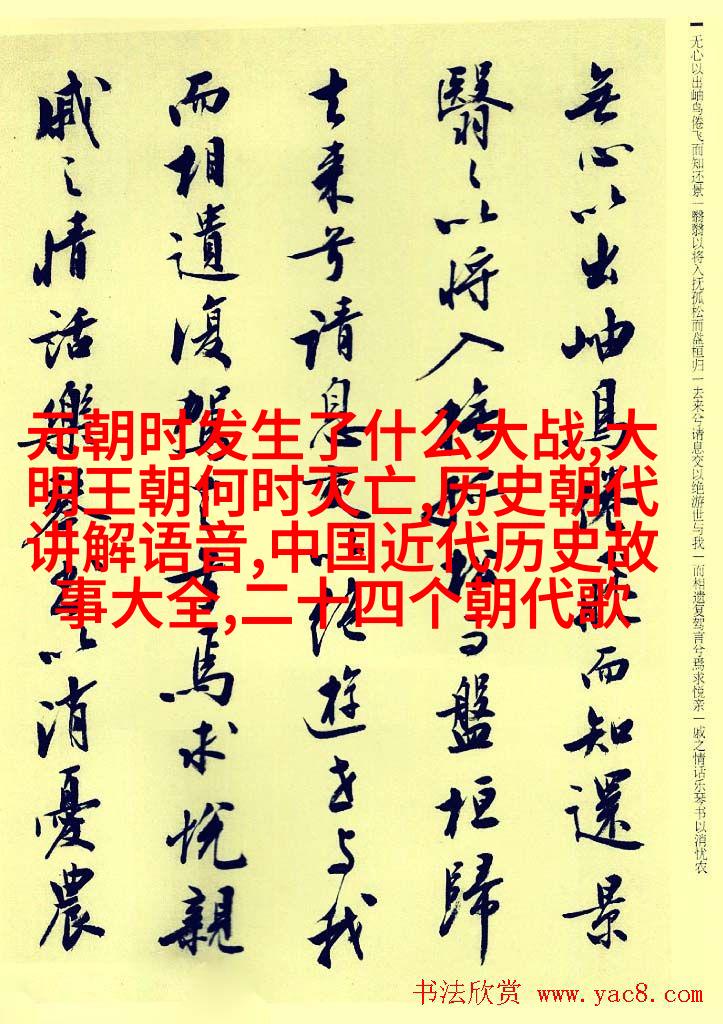 无心以出岫鸟倦飞而知还景一翳翳以将入抚孤松而盘桓归一去来兮请息交以绝游世与我一而相遗复驾言兮焉求悦亲一戚之情话乐琴书以消忧农
無心以出岫鳥倦飛而知還景
翳〻以将入撫孤松而盤桓歸
去来兮请息交以絶遊世与我
而相遺復駕言兮焉求悦親
戚之情話樂琴書以消憂農
元朝时发生了什么大战,大
明王朝何时灭亡,历史朝代
讲解语音,中国近代历史故
事大全,二十四个朝代歌
书法欣赏 www.yac8.com